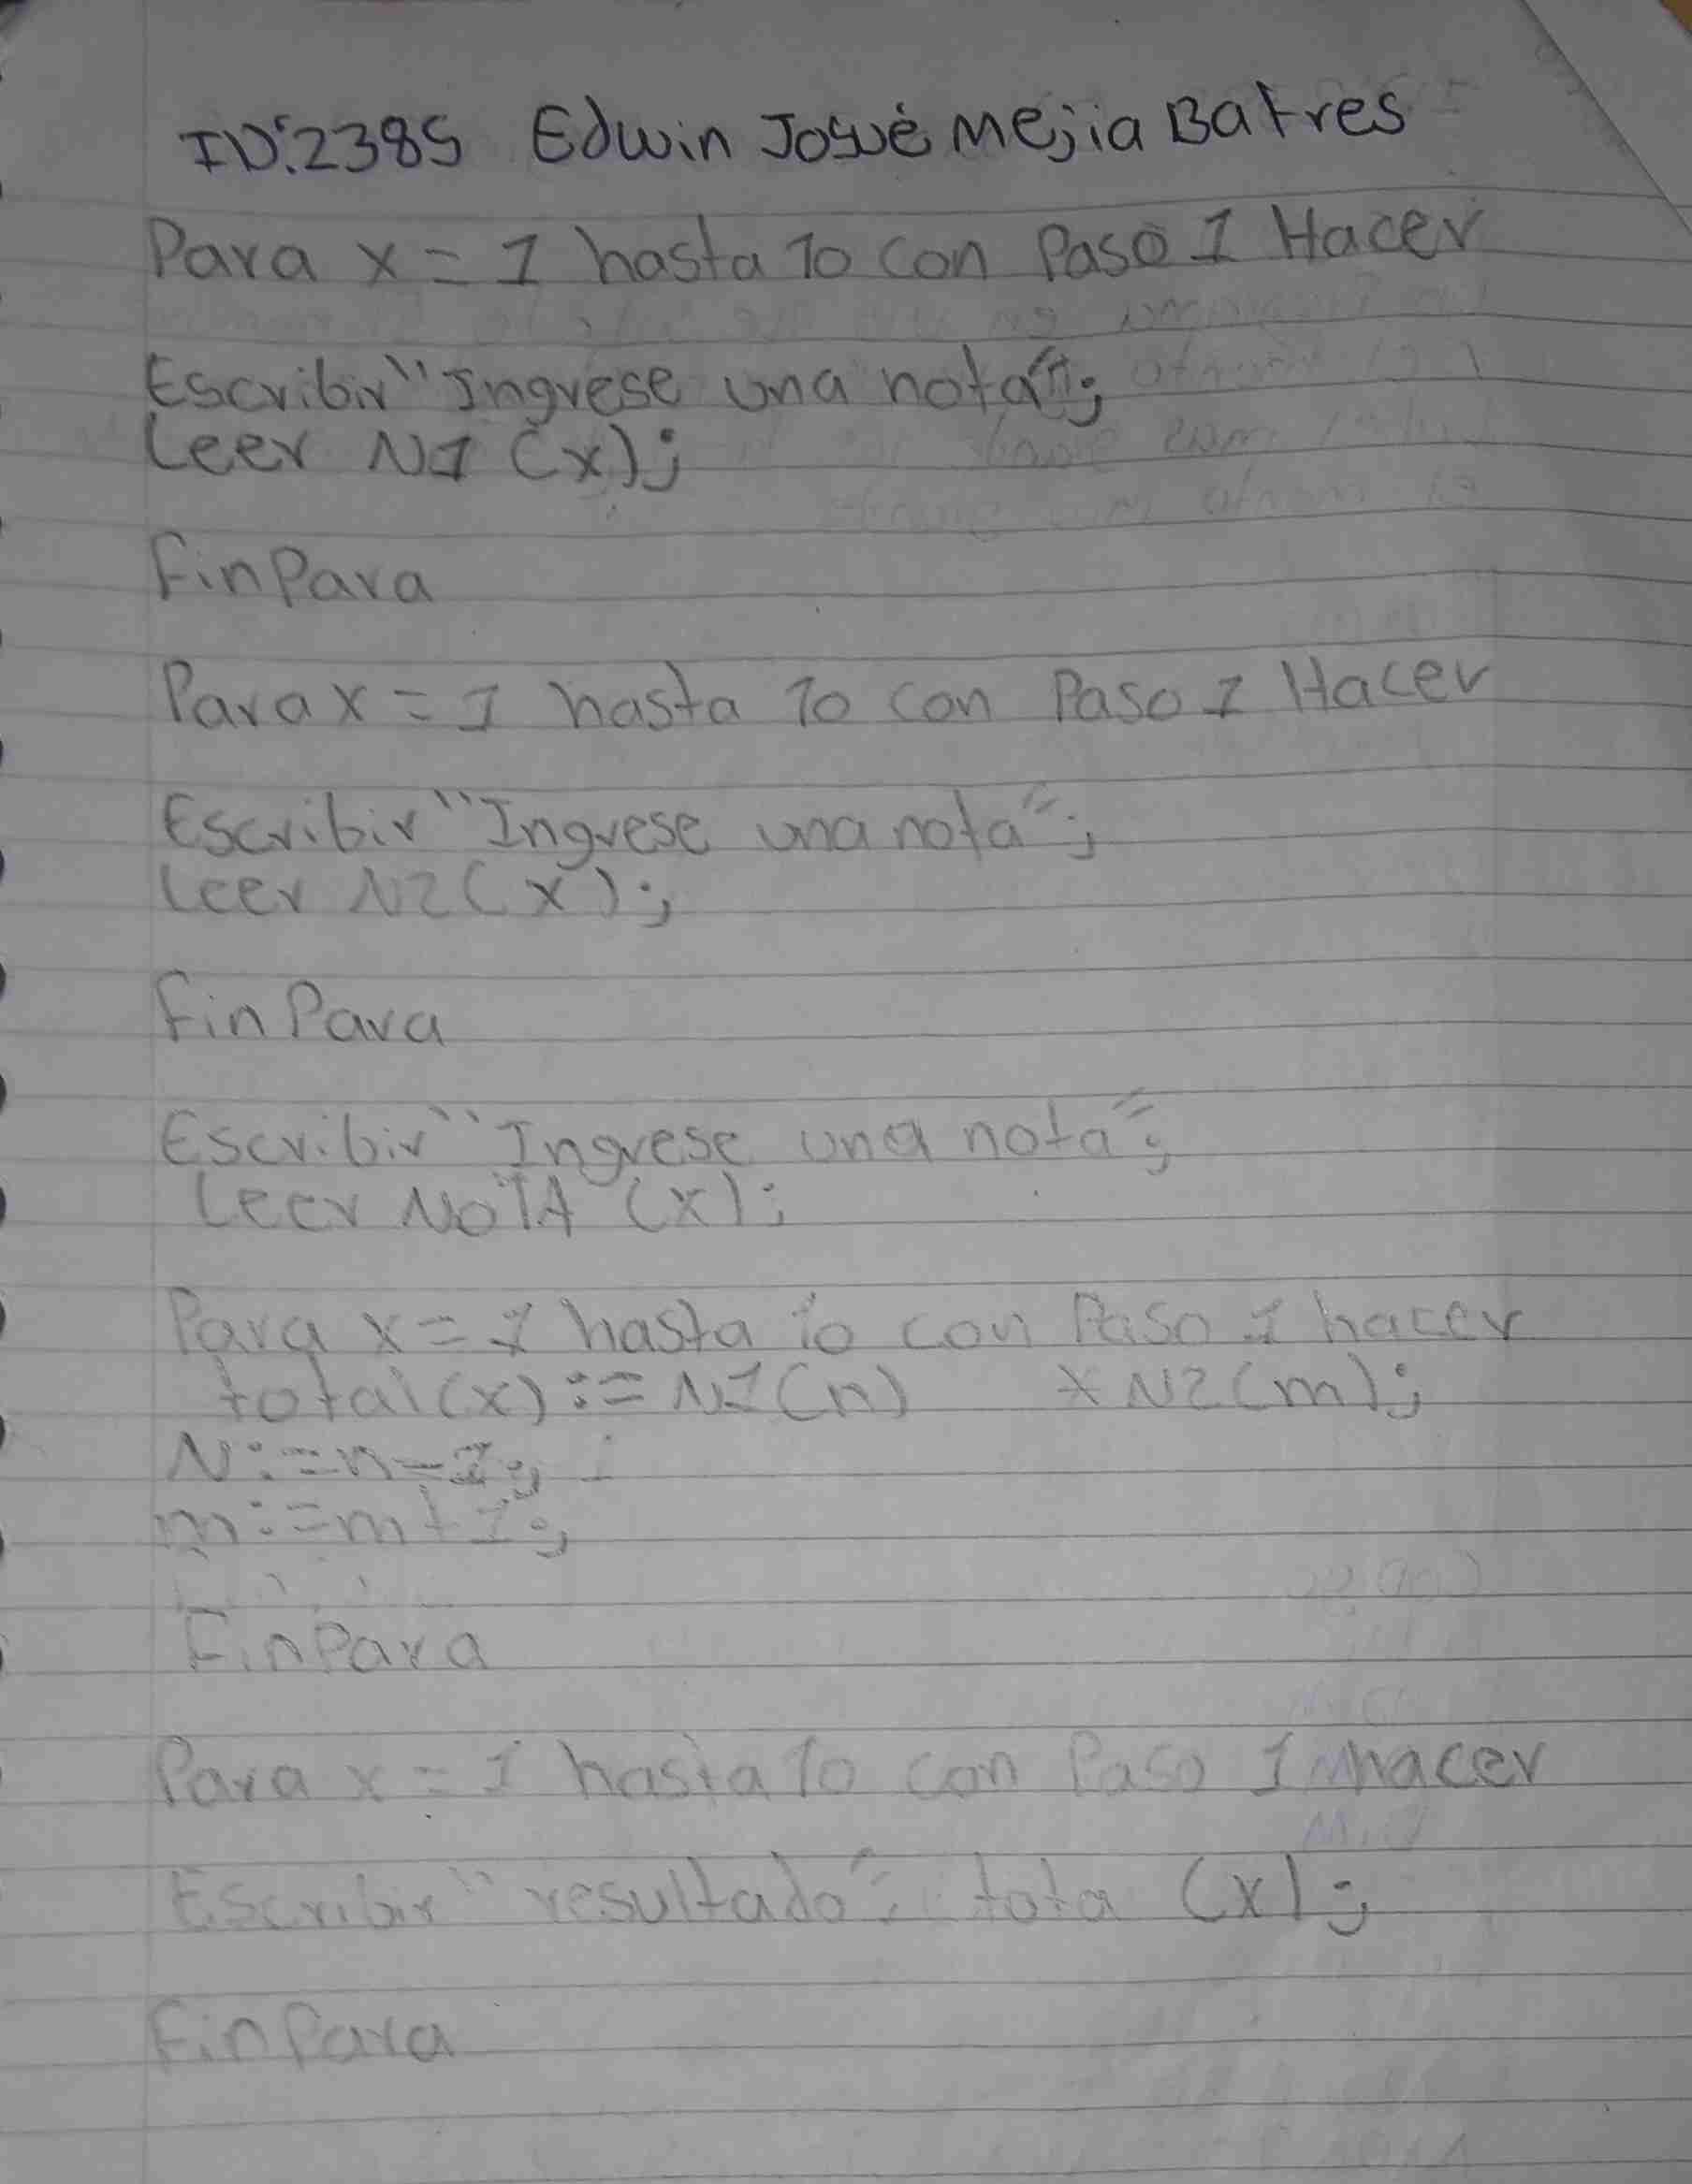 ID:2385 Edwin Josué Mejia Batres
Para x = 1 hasta 10 con Paso 1 Hacer
Escribir "Ingrese una nota";
Leer N1 (x);
FinPara
Para x = 1 hasta 10 con Paso 1 Hacer
Escribir "Ingrese una nota";
Leer N2 (x);
Fin Para
Escribir "Ingrese una nota";
Leer NOTA (x);
Para x = 1 hasta 10 con Paso 1 hacer
total(x) := N1(n) * N2(m);
N := n-1;
m := m+1;
FinPara
Para x = 1 hasta 10 con Paso 1 hacer
Escribir "resultado", tota (x);
FinPara